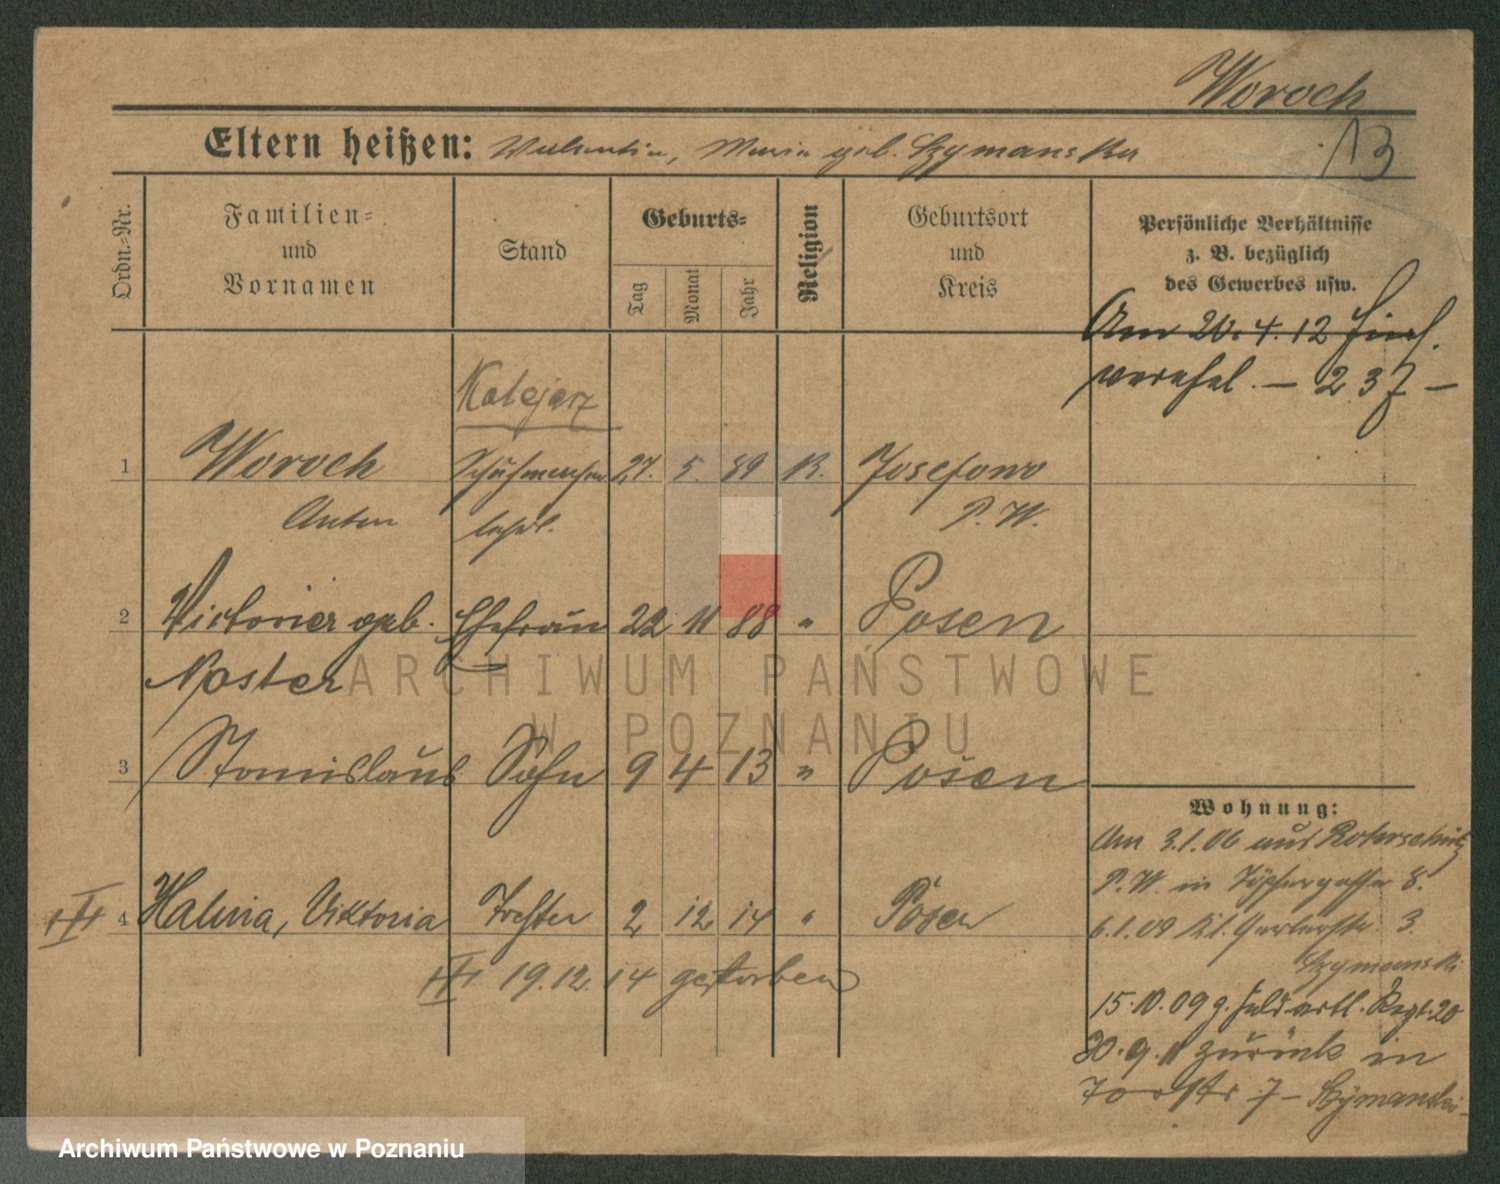 Woroch
13
Eltern heißen: Valentin, Maria geb. Szymanska
Ordn.-Nr.
Familien-
und
Vornamen
Stand
Geburts-
Tag
Monat
Jahr
Religion
Geburtsort
und
Kreis
Persönliche Verhältnisse
z. B. bezüglich
des Gewerbes usw.
Am 20.4.12
— 237 —
Kolejarz
1 Woroch Schuhmacher 27. 5. 89 K. Josefowo
Anton lehrl. P. W.
2 Victoria geb. Ehefrau 22 11 88 " Posen
Noster
ARCHIWUM PAŃSTWOWE
W POZNANIU
3 Stanislaus Sohn 9 4 13 " Posen
Wohnung:
Am 3.1.06 aus
P. W. in Töpfergasse 8.
4 Halina, Viktoria Tochter 2 12 14 " Posen
6.1.09 Gerberstr. 3
19.12.14 gestorben
Szymanski
15.10.09 z. Feldartl. Regt. 20
30.9.11 zurück in
Torstr 7 - Szymanski -
Archiwum Państwowe w Poznaniu